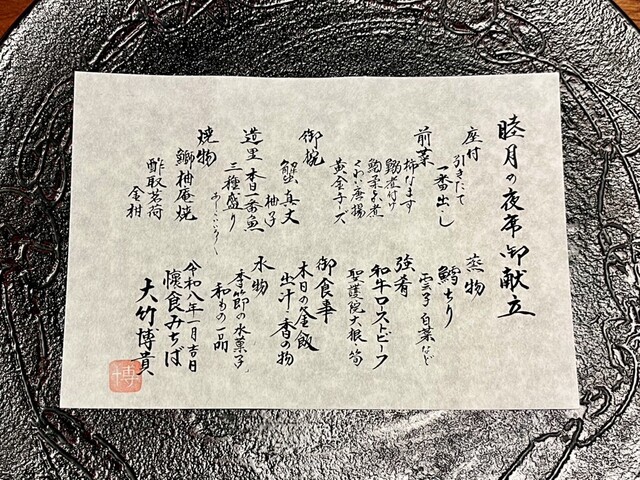 睦月の夜席御献立
座付
引きたて
一番出し
前菜
柿なます
鰯煮付け
鞠子よ煮
くわい唐揚
黄金チーズ
御椀
蟹真丈
柚子
造里 本日一番魚
三種盛り
あしらいろ〱
焼物
鰤柚庵焼
酢取茗荷
金柑
蒸物
鱈ちり
雲子 白菜など
強肴
和牛ローストビーフ
聖護院大根・筍
御食事
本日の釜飯
出汁・香の物
水物
季節の水菓子
和もの一品
令和八年一月吉日
懐食みちば
大竹博貴
博